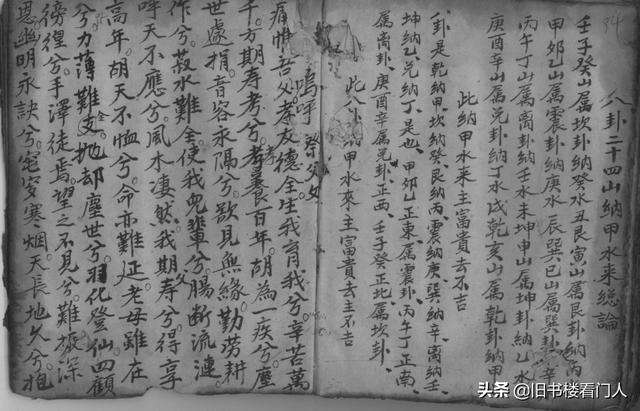 34
八卦二十四山納甲水来總論
壬子癸山属坎卦納癸水丑艮寅山属艮卦納丙
甲卯乙山属震卦納庚水辰巽巳山属巽卦辛
丙午丁山属离卦納壬水未坤申山属坤卦納乙水
庚酉辛山属兑卦納丁水戌乾亥山属乾卦納甲
此納甲水来主富貴去不吉
八卦是乾納甲坎納癸艮納丙震納庚巽納辛离納壬
坤納乙兑納丁是也甲卯乙正東属震卦丙午丁正南
属离卦庚酉辛属兑卦正西壬子癸正北属坎卦
此八卦納甲水来主富貴去主不吉
祭父文
嗚呼
痛惟吾父孝友德全生我育我兮辛苦萬
千方期寿考兮孝養百年胡為一疾兮塵
世遽捐音容永隔兮欲見無緣勤劳耕
作兮菽水難全使我兒輩兮腸断流漣
呼天不應兮風木凄然我期父寿兮得享
高年胡天不恤兮命亦難延老母雖在
兮力薄難支抛却塵世兮羽化登仙四顧
徬徨兮手澤徒焉望之不見兮難报深
恩幽明永訣兮窀穸寒烟天長地久兮抱
头条 @旧书楼看门人